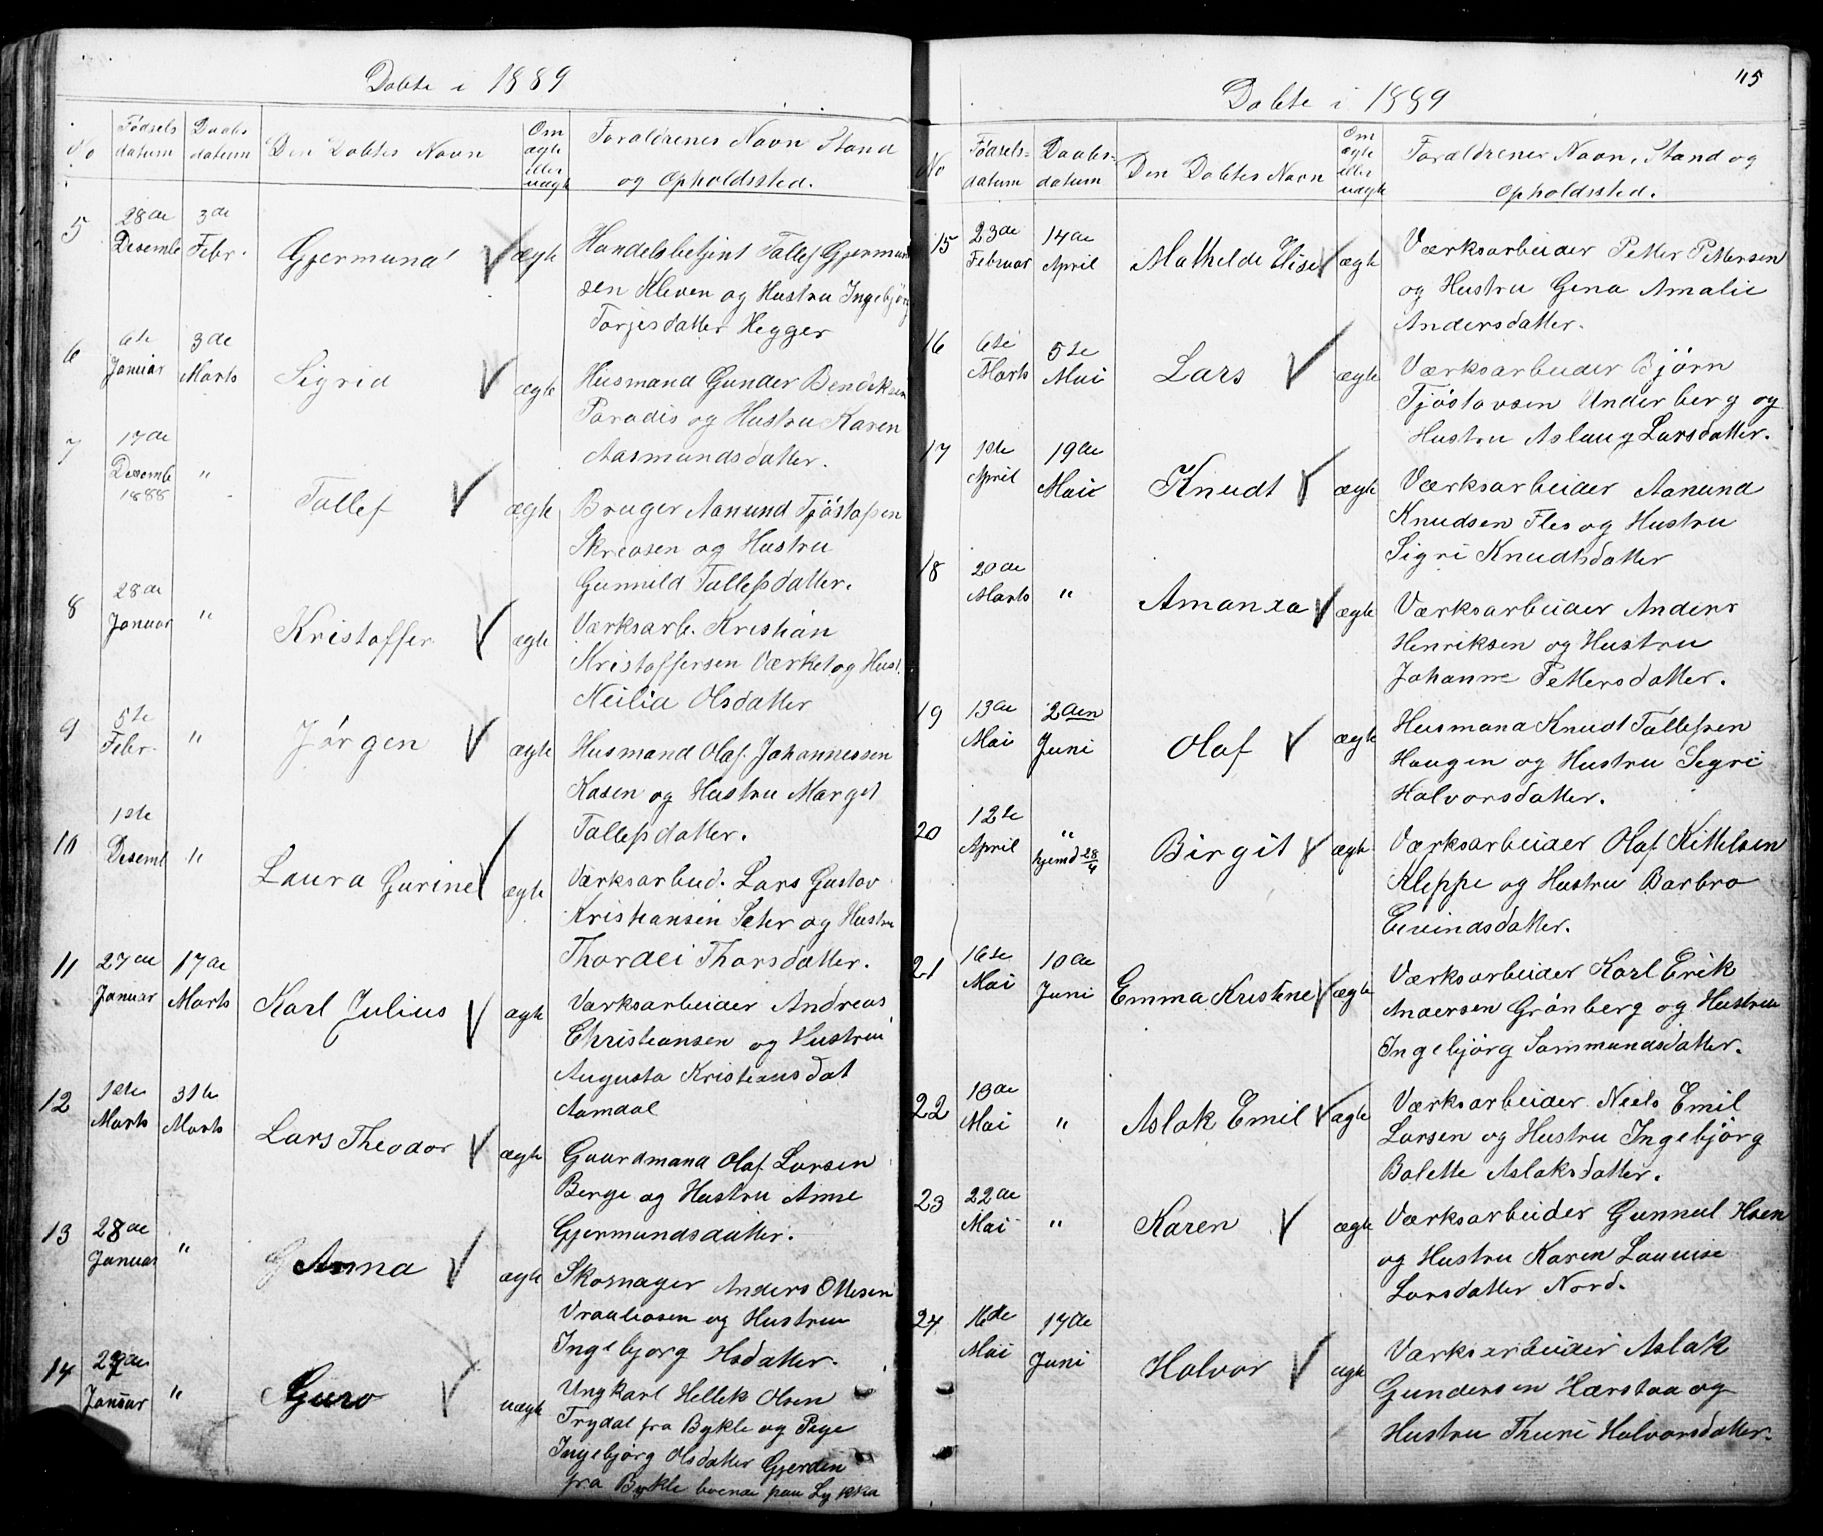 Døbte i 1889
No
Fødsels datum
Daabs datum
Den Døbtes Navn
Om ægte eller uægte
Forældrenes Navn Stand og Opholdssted.
5
28de Desembr
3de Febr.
Gjermund
ægte
Handelsbetjent Tallef Gjermund
sen Kleven og Hustru Ingebjörg
Torjesdatter Hegger
6
6te Januar
3de Marts
Sigrid
ægte
Husmand Gunder Bendiksen
Paradis og Hustru Karen
Aasmundsdatter.
7
17de Desemb 1888
"
Tallef
ægte
Bruger Aanund Tjöstafsen
Skreosen og Hustru
Gunnild Tallefsdatter.
8
28de Januar
"
Kristoffer
ægte
Værksarb. Kristian
Kristoffersen Værket og Hust.
Neilia Olsdatter
9
5te Febr.
"
Jørgen
ægte
Husmand Olaf Johannessen
Kasen og Hustru Marget
Tallefsdatter.
10
1ste Desemb
"
Laura Gurine
ægte
Værksarbeid. Lars Gustav
Kristiansen Seter og Hustru
Thordei Thorsdatter.
11
27de Januar
17de Marts
Karl Julius
ægte
Værksarbeider Andreas
Christiansen og Hustru
Augusta Kristiansdat
Aamdal
12
1ste Marts
31te Marts
Lars Theodor
ægte
Gaardmand Olaf Larsen
Berge og Hustru Anne
Gjermundsdatter.
13
28de Januar
"
Anna
ægte
Skomager Anders Ottesen
Vraaliosen og Hustru
Ingebjorg Hsdatter.
14
Januar
"
Guro
uægte
Ungkarl Hellek Olsen
Trydal fra Bykle og Pige
Ingebjörg Olsdatter Gjerden
fra Bykle boende paa Lykka
45
Døbte i 1889
No
Fødsels- datum
Daabs- datum
Den Døbtes Navn
Om ægte eller uægte
Forældrenes Navn, Stand og
Opholdssted.
15
23de Februar
14de April
Mathelde Elise
ægte
Værksarbeider Petter Pettersen
og Hustru Gena Amalie
Andersdatter.
16
6te Marts
5te Mai
Lars
ægte
Værksarbeider Bjørn
Tjöstavsen Underberg og
Hustru Aslaug Larsdatter.
17
1ste April
19de Mai
Knudt
ægte
Værksarbeider Aanund
Knudsen Fles og Hustru
Sigri Knudtsdatter
18
20de Marts
"
Amanda
ægte
Værksarbeider Anders
Henriksen og Hustru
Johanne Pettersdatter.
19
13de Mai
2den Juni
Olaf
ægte
Husmand Knudt Tallefsen
Haugen og Hustru Sigri
Halvorsdatter.
20
12te April
" hjemd 28/4
Birgit
ægte
Værksarbeider Olaf Kittelsen
Kleppe og Hustru Barbro
Eivindsdatter.
21
16te Mai
10de Juni
Emma Kristine
ægte
Værksarbeider Karl Erik
Andersen Grönberg og Hustru
Ingebjörg Sammundsdatter.
22
13de Mai
"
Aslak Emil
ægte
Værksarbeider Niels Emil
Larsen og Hustru Ingebjörg
Bolette Aslaksdatter.
23
22de Mai
"
Karen
ægte
Værksarbeider Gunnul Hoen
og Hustru Karen Lauise
Larsdatter Nord.
24
16de Mai
17de Juni
Halvor
ægte
Værksarbeider Aslak
Gundersen Hærstaa og
Hustru Thuri Halvorsdatter.